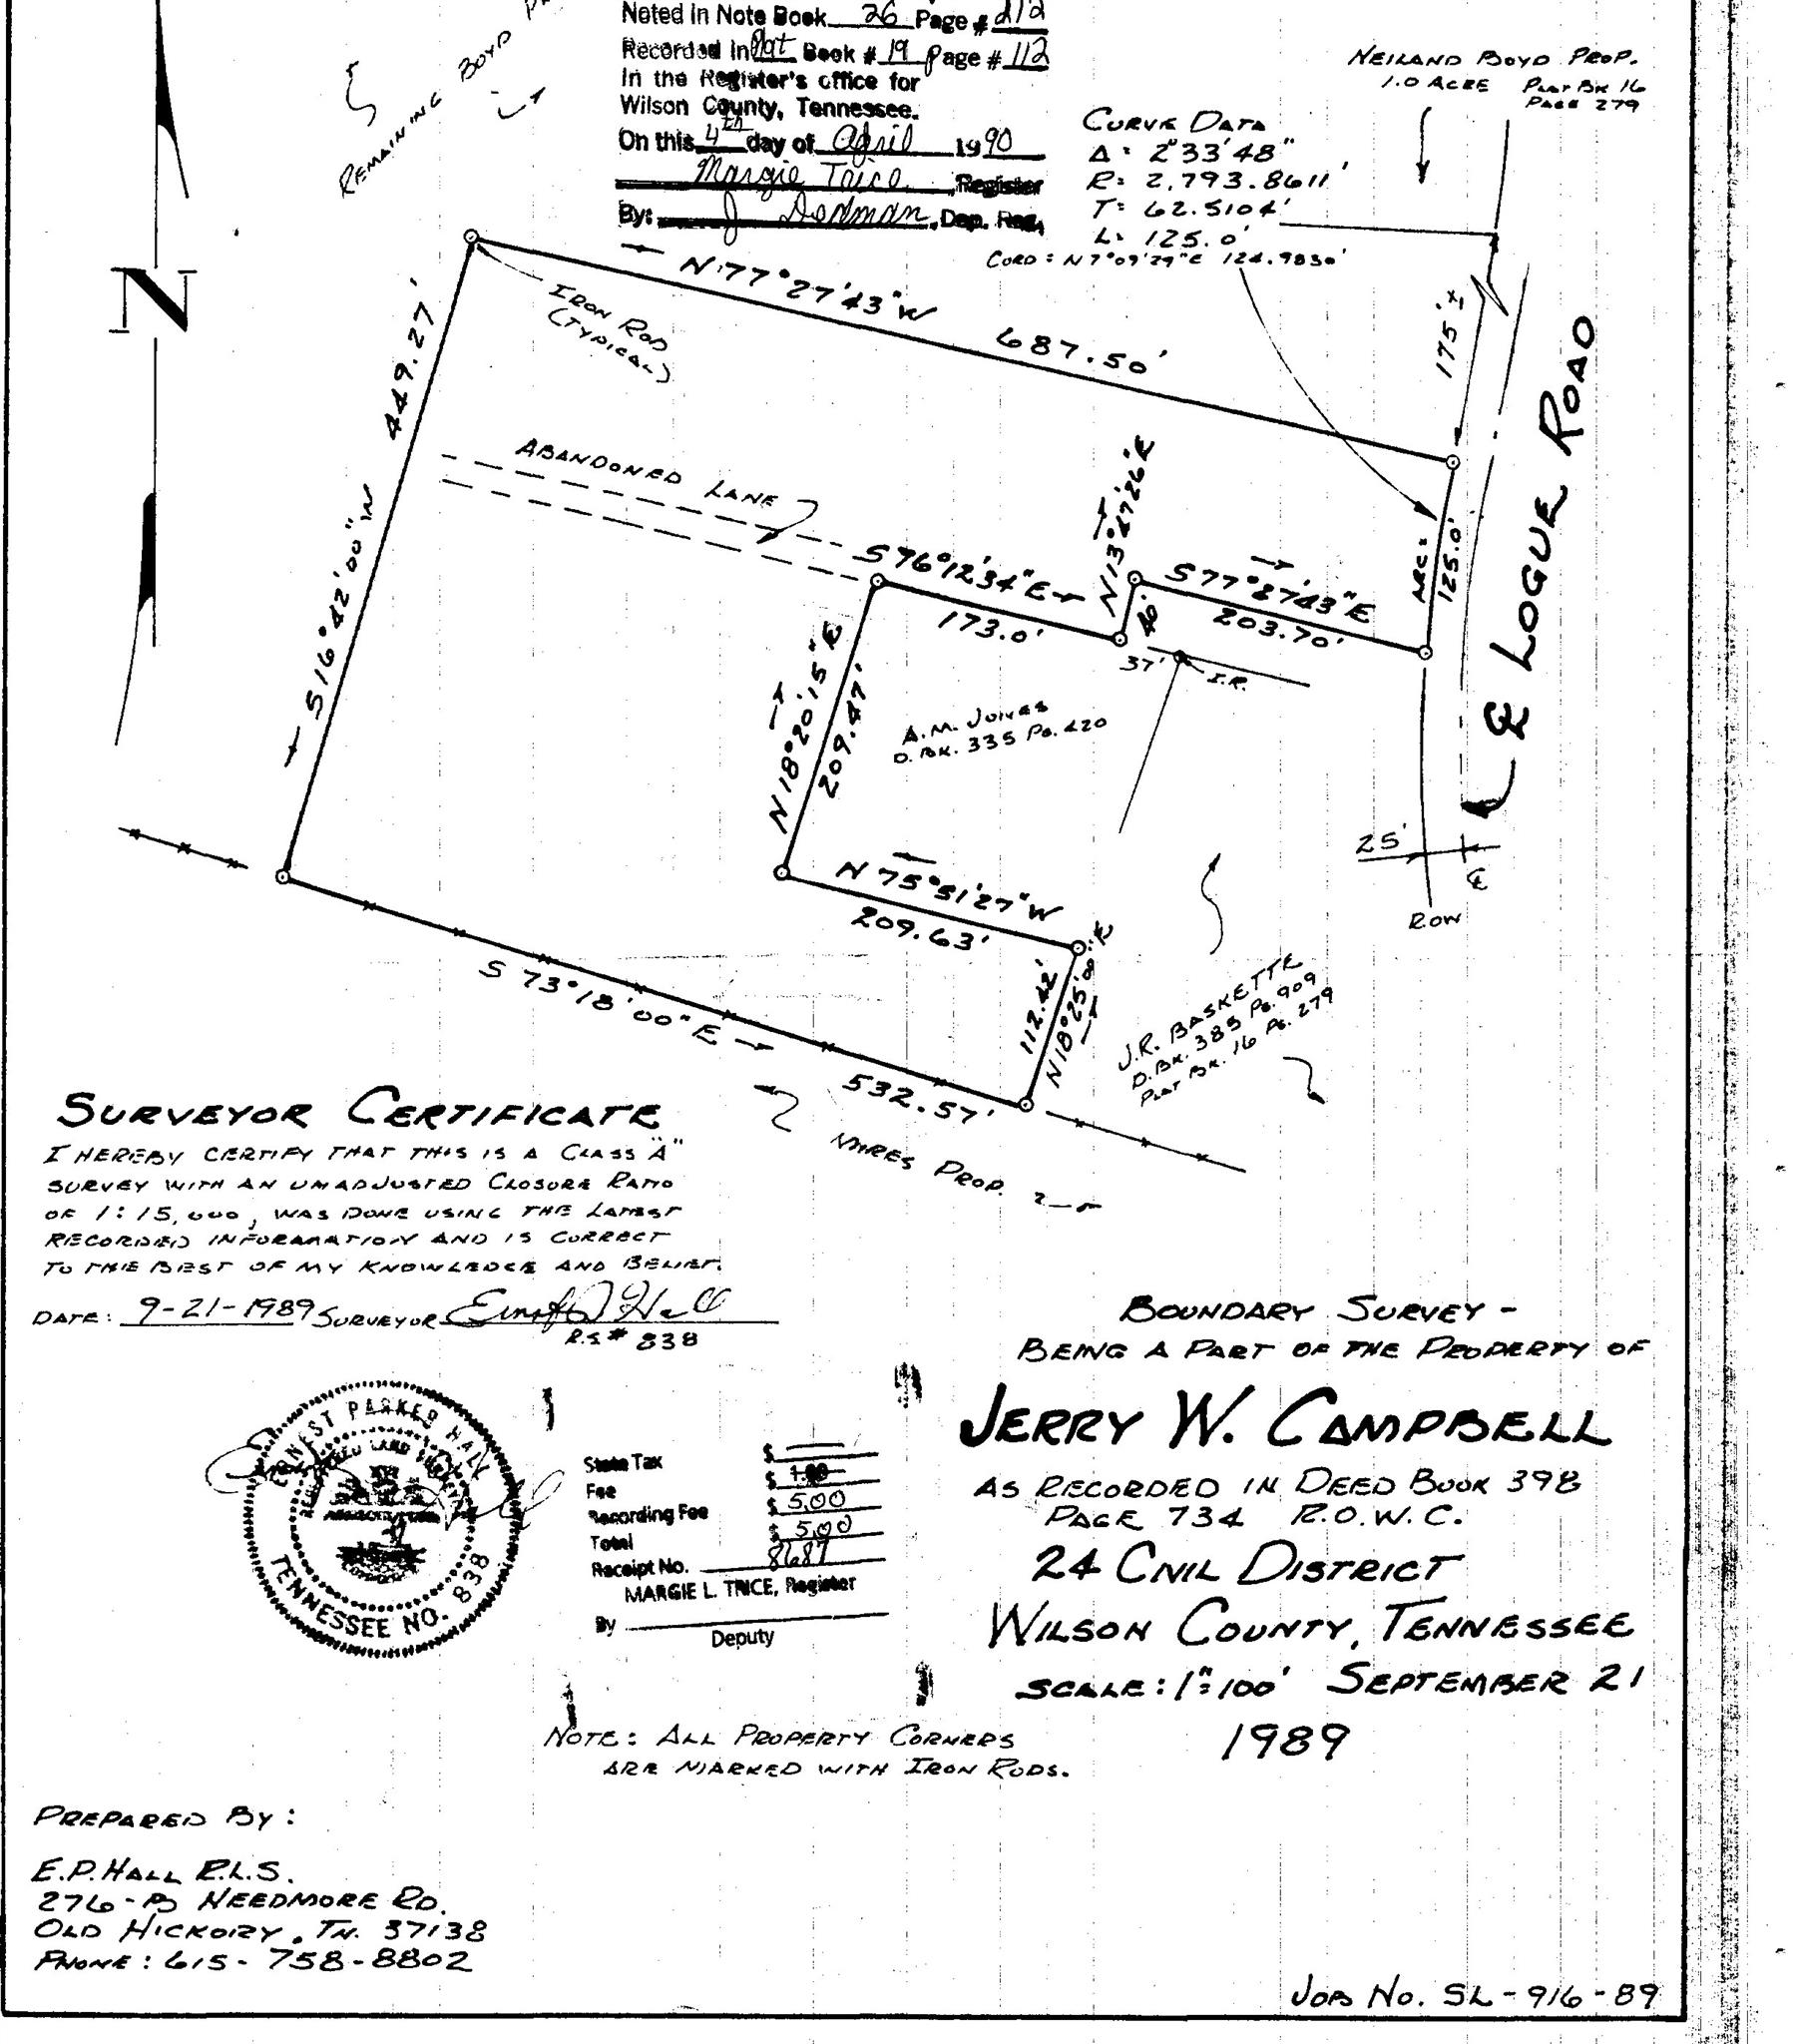 Noted in Note Book 26 Page # 212
Recorded in Plat Book # 19 Page # 112
In the Register's office for
Wilson County, Tennessee.
On this 4th day of April 1990
Margie Trice, Register
By: J Dedman, Dep. Reg.
REMAINING BOYD
NEILAND BOYD PROP.
1.0 ACRE PLAT BK 16
PAGE 279
CURVE DATA
Δ: 2°33'48"
R: 2,793.8611'
T: 62.5104'
L: 125.0'
CORD: N7°09'29"E 124.9830'
N
N 77°27'43"W 687.50'
IRON ROD
(TYPICAL)
175'±
S16°42'00"W 449.27'
ABANDONED LANE
S76°12'34"E
173.0'
N13°47'26"E
40'
S77°27'43"E
203.70'
ARC=
125.0'
℄ LOGUE ROAD
37'
I.R.
N18°20'15"E
209.47'
A.M. JONES
D.BK. 335 PG. 420
25'
℄
ROW
N 75°51'27"W
209.63'
112.42'
N18°25'00"E
J.R. BASKETTE
D.BK. 385 PG. 909
PLAT BK. 16 PG. 279
S 73°18'00"E
532.57'
PROP.
SURVEYOR CERTIFICATE
I HEREBY CERTIFY THAT THIS IS A CLASS "A"
SURVEY WITH AN UNADJUSTED CLOSURE RATIO
OF 1:15,000, WAS DONE USING THE LATEST
RECORDED INFORMATION AND IS CORRECT
TO THE BEST OF MY KNOWLEDGE AND BELIEF.
DATE: 9-21-1989 SURVEYOR
R.S # 838
ERNEST PARKER HALL
REGISTERED LAND SURVEYOR
TENNESSEE NO. 838
State Tax $
Fee $ 1.00
Recording Fee $ 5.00
Total $ 5.00
Receipt No. 8687
MARGIE L. TRICE, Register
By
Deputy
BOUNDARY SURVEY -
BEING A PART OF THE PROPERTY OF
JERRY W. CAMPBELL
AS RECORDED IN DEED BOOK 398
PAGE 734 R.O.W.C.
24 CIVIL DISTRICT
WILSON COUNTY, TENNESSEE
SCALE: 1"=100' SEPTEMBER 21
1989
NOTE: ALL PROPERTY CORNERS
ARE MARKED WITH IRON RODS.
PREPARED BY:
E.P. HALL R.L.S.
276-B NEEDMORE RD.
OLD HICKORY, TN. 37138
PHONE: 615-758-8802
JOB NO. SL-916-89